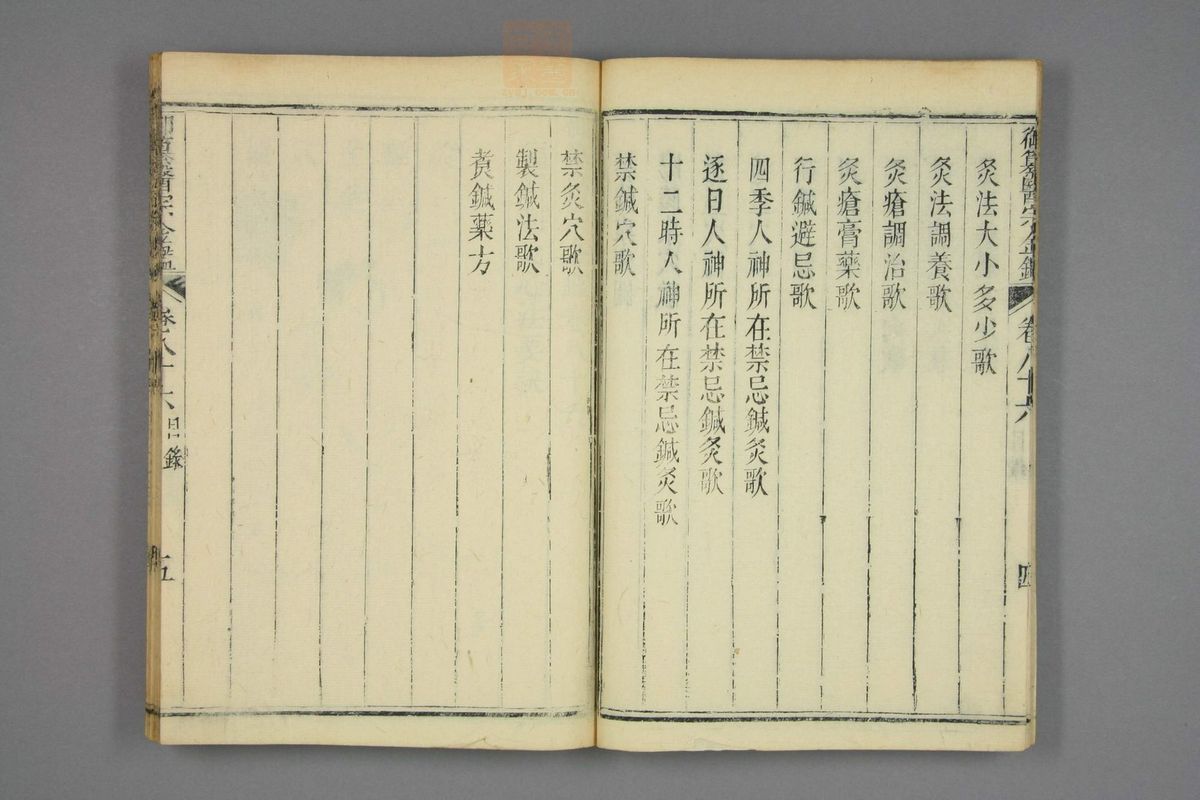 御纂醫宗金鑑 卷八十六 四
灸法大小多少歌
灸法調養歌
灸瘡調治歌
灸瘡膏藥歌
行鍼避忌歌
四季人神所在禁忌鍼灸歌
逐日人神所在禁忌鍼灸歌
十二時人神所在禁忌鍼灸歌
禁鍼穴歌
禁灸穴歌
製鍼法歌
煑鍼藥方
醫宗金鑑 卷八十六 目錄 五